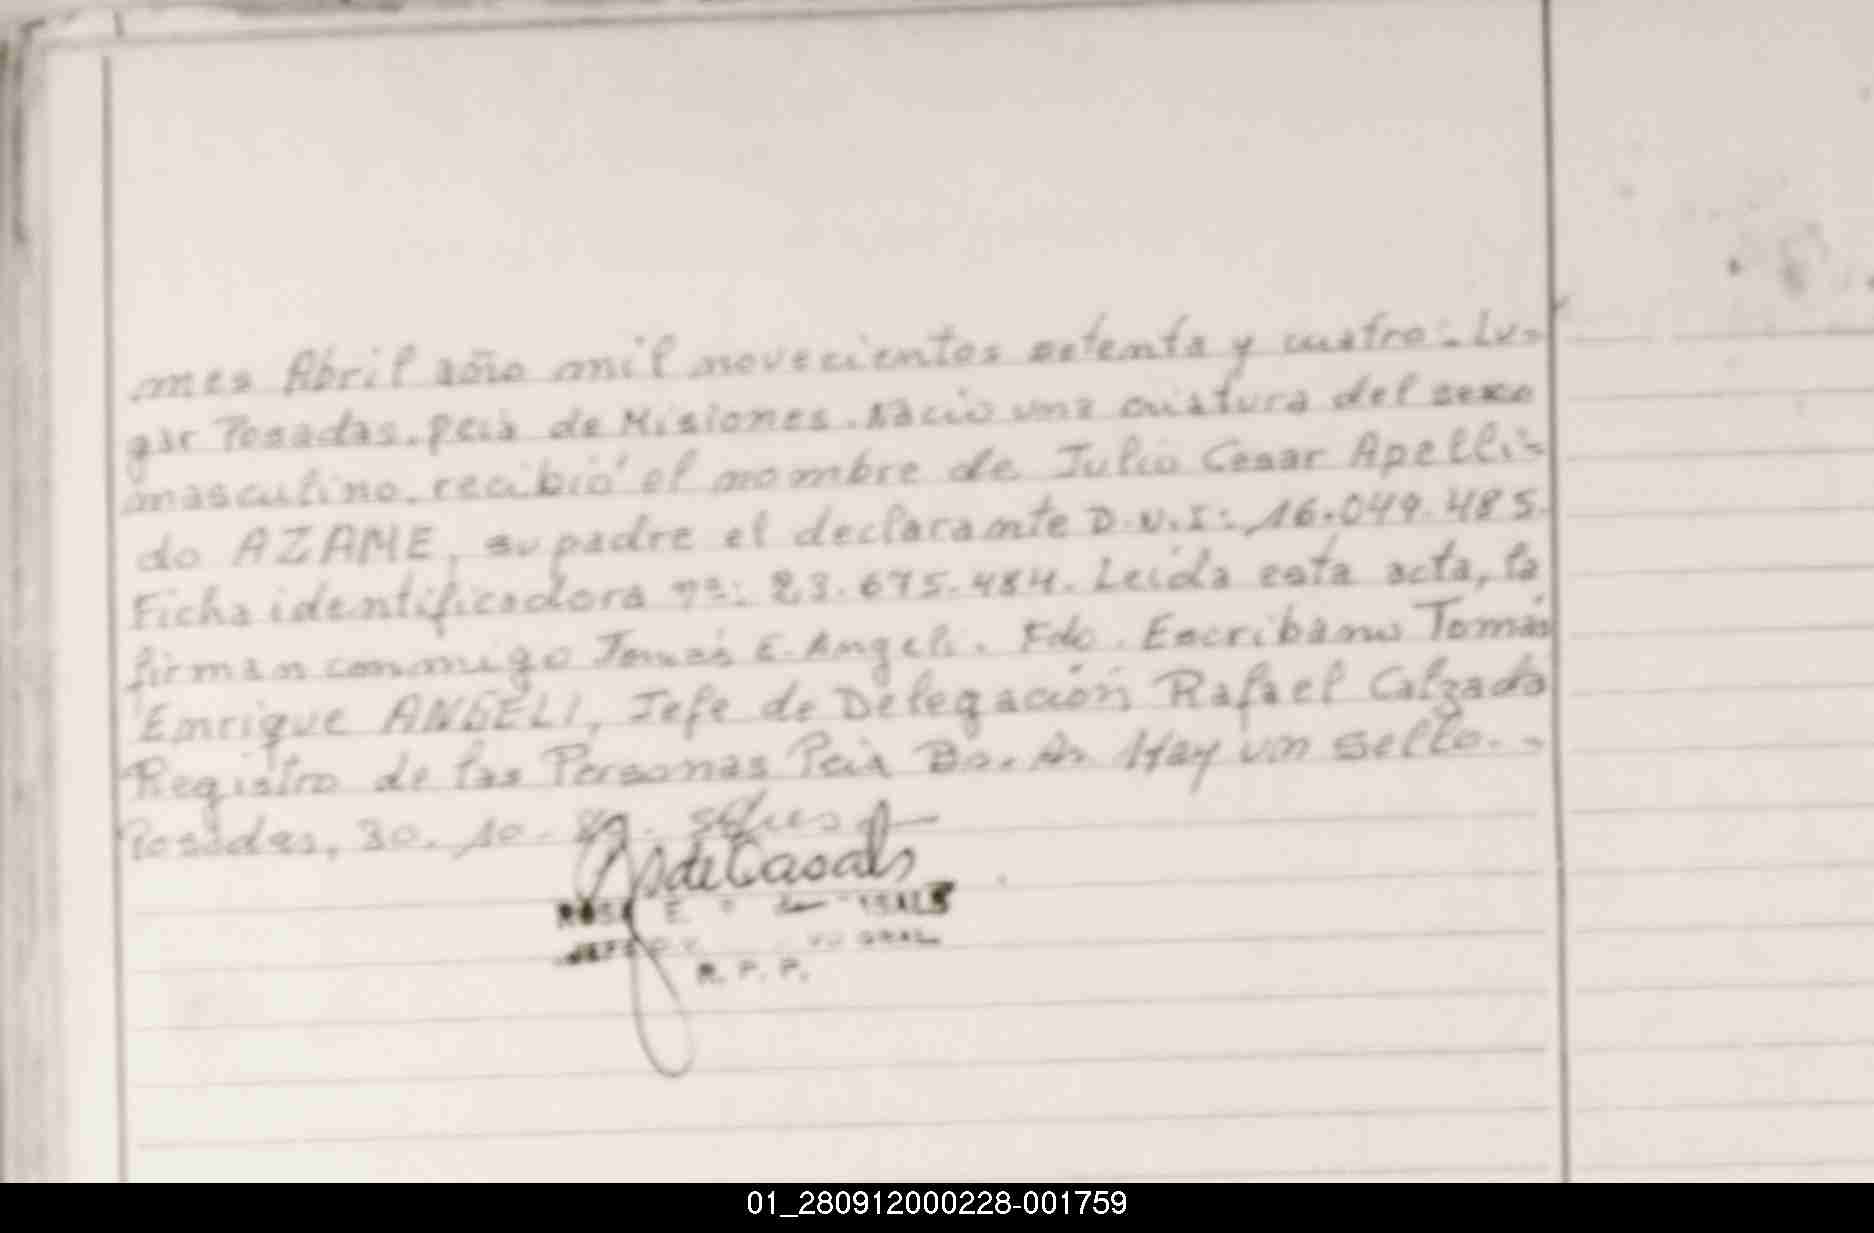 mes Abril año mil novecientos setenta y cuatro:. Lu=
gar Posadas. Pcia de Misiones. Nacio una criatura del sexo
masculino. recibió el nombre de Julio Cesar Apelli=
do AZAME, su padre el declarante D.N.I:. 16.049.485.
Ficha identificadora nº: 23.675.484. Leída esta acta, la
firman conmigo Tomás E. Angeli. Fdo. Escribano Tomás
Enrique ANGELI, Jefe de Delegación Rafael Calzada
Registro de las Personas Pcia Bs. As Hay un sello. -
Posadas, 30. 10.
de Casals
ROSA E. de
JEFE
R. P. P.
01_280912000228-001759